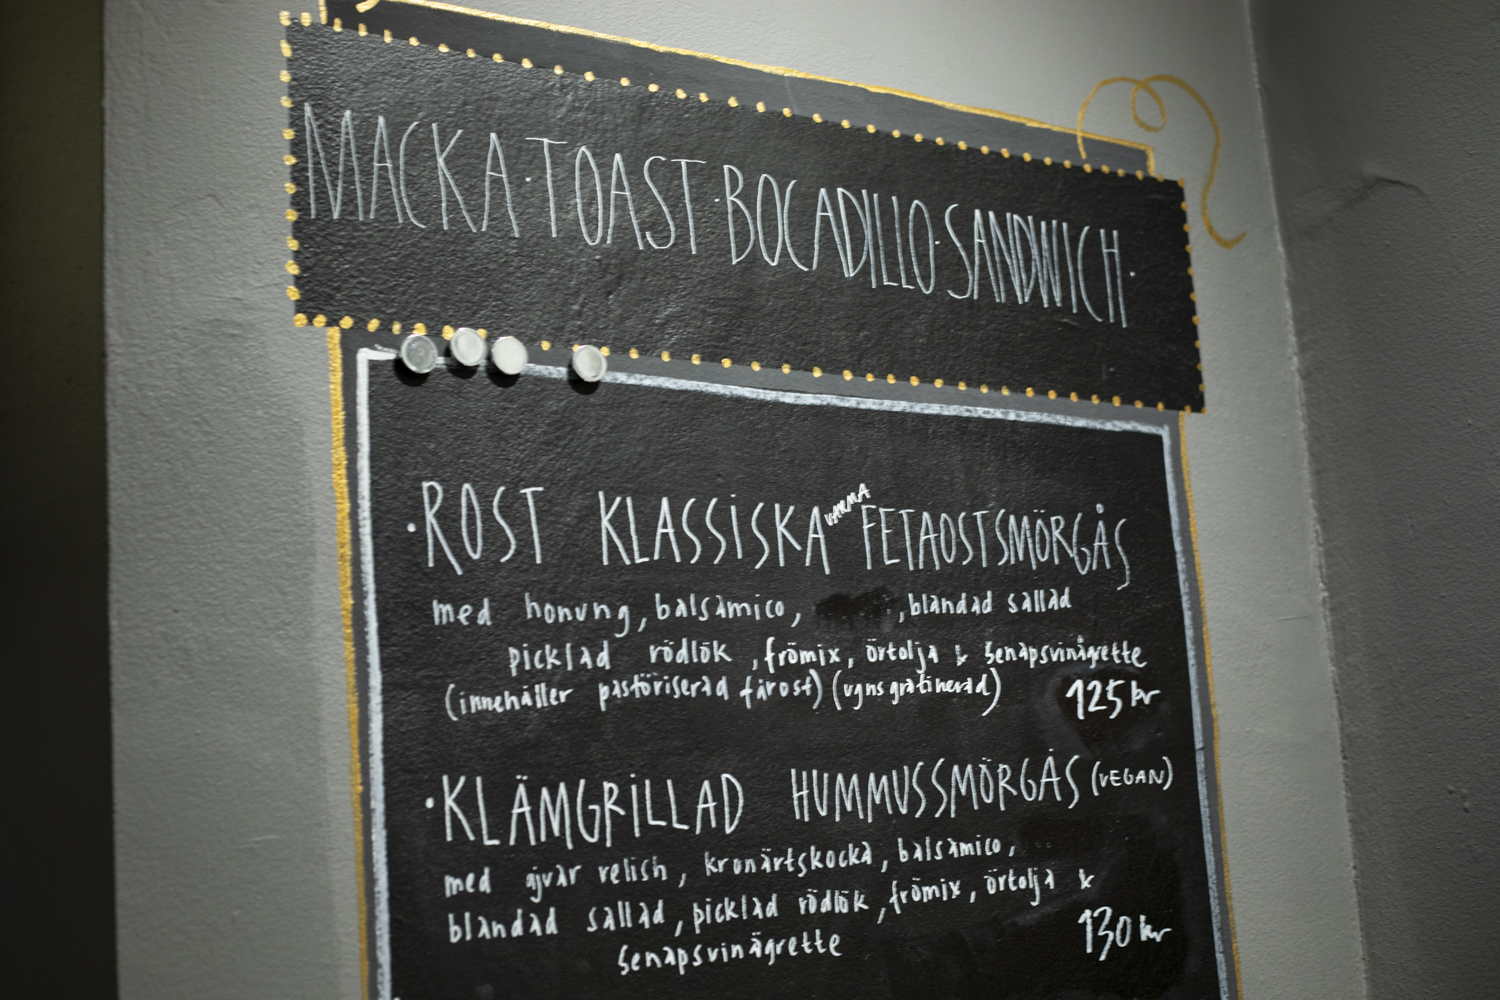 MACKA·TOAST·BOCADILLO·SANDWICH·
·ROST KLASSISKA VARMA FETAOSTSMÖRGÅS
med honung, balsamico, , blandad sallad
picklad rödlök, frömix, örtolja & senapsvinägrette
(innehåller pastöriserad fårost) (ugnsgratinerad) 125 kr
·KLÄMGRILLAD HUMMUSSMÖRGÅS (VEGAN)
med ajvar relish, kronärtskocka, balsamico,
blandad sallad, picklad rödlök, frömix, örtolja &
senapsvinägrette 130 kr